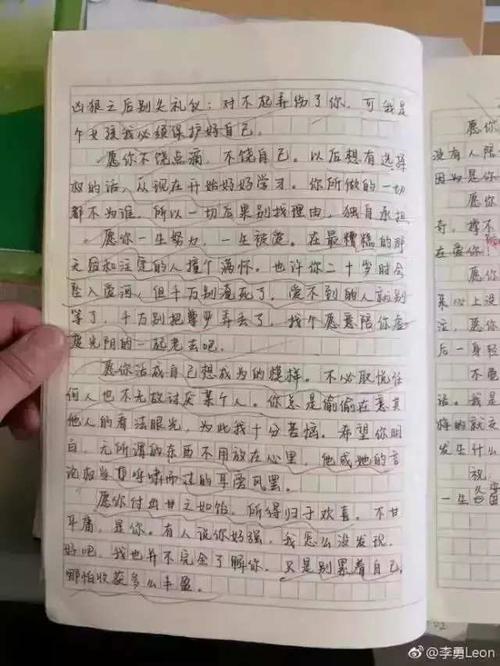 凶狠之后别失礼仪：对不起弄伤了你，可我是
个女孩我必须保护好自己。
愿你不饶点滴，不饶自己。以后想有选择
权的话，从现在开始好好学习。你所做的一切
都不为谁，所以一切后果别找理由，独自承担
愿你一生努力，一生被爱。在最糟糕的那
天后和注定的人撞个满怀。也许你二十岁时会
坠入爱河，但千万别淹死了，爱不到的人就别
等了，千万别把尊严弄丢了，找个愿意陪你虚
度光阴的一起老去吧。
愿你活成自己想成为的模样。不必取悦任
何人也不无故讨厌某个人。你总是偷偷在意其
他人的看法眼光，为此我十分苦恼。希望你明
白，无所谓的东西不用放在心里，他或她的言
论权当耳旁风罢。
愿你付出甘之如饴，所得归于欢喜。不甘
平庸，是你。有人说你好强，我怎么没发现，
好吧，我也并不完全了解你，只是别累着自己，
哪怕收获多么丰盈。
愿你
没有人陪
因为是你
愿你
奇，撑不
在爱你！
愿你
某心上
注，愿你
后一身轻
不要
话。我是
悔的就
发生什么
一生
@李勇Leon